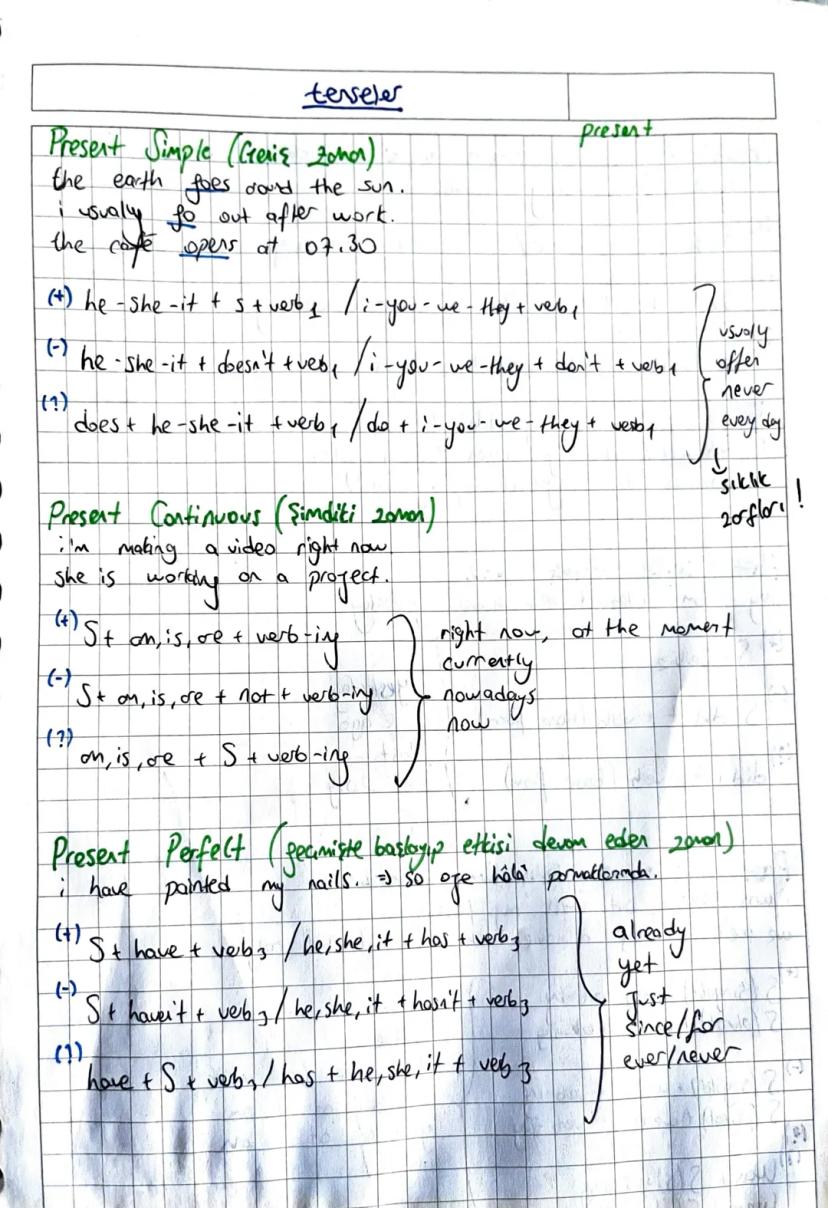 tenseler
present
Present Simple (Geniş zaman)
the earth goes around the sun.
i usualy go out after work.
the cafe opens at 07.30
(+) he-she-it + s + verb1 / i-you-we-they + verb1
(-) he-she-it + doesn't + verb1 / i-you-we-they + don't + verb1
(?) does + he-she-it + verb1 / do + i-you-we-they + verb1
usualy
often
never
every day
↓
sıklık
zarfları !
Present Continuous (Şimdiki zaman)
i'm making a video right now
she is working on a project.
(+) S + am, is, are + verb-ing
(-) S + am, is, are + not + verb-ing
(?) am, is, are + S + verb-ing
right now, at the moment
currently
nowadays
now
Present Perfect (geçmişte başlayıp etkisi devam eden zaman)
i have painted my nails. => so oje hâlâ parmaklarımda.
(+) S + have + verb3 / he, she, it + has + verb3
(-) S + haven't + verb3 / he, she, it + hasn't + verb3
(?) have + S + verb3 / has + he, she, it + verb3
already
yet
just
since/for
ever/never